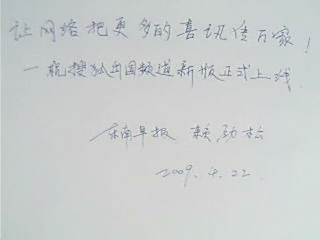 让网络把更多的喜讯传万家!
一祝搜狐出国频道新版正式上线
东南早报 赖劲松
2009.4.22